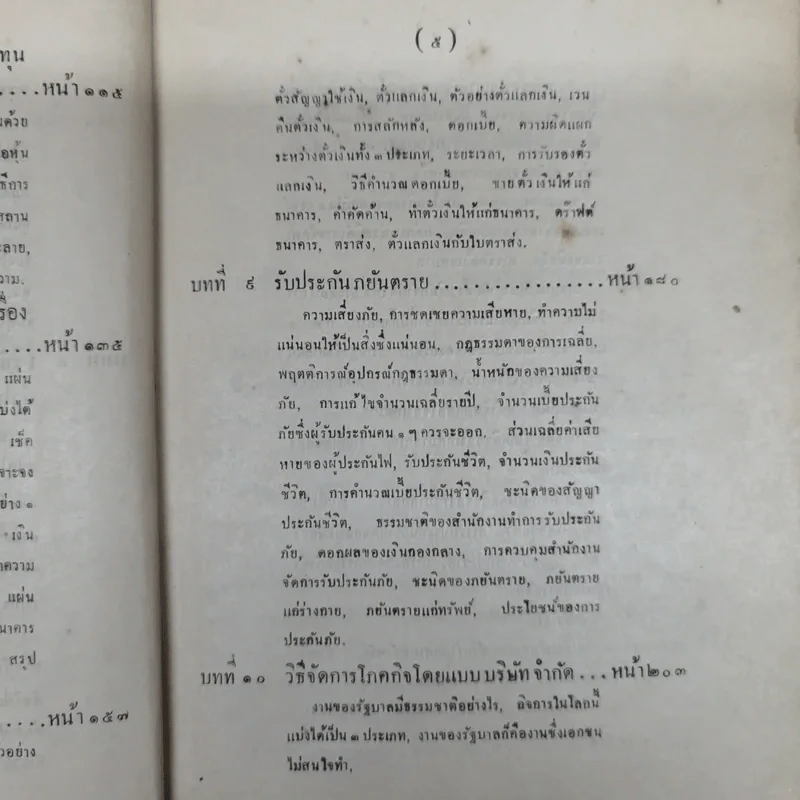 ทุน
....หน้า ๑๑๕
นด้วย
อหุ้น
ธีการ
สถาน
ะลาย,
วาม.
รื่อง
....หน้า ๑๓๕
แผ่น
บ่งได้
เช็ค
จาะจง
ย่าง ๑
เงิน
ความ
แผ่น
นาคาร
สรุป
....หน้า ๑๕๗
ัวอย่าง
( ๕ )
ตั๋วสัญญาใช้เงิน, ตั๋วแลกเงิน, ตัวอย่างตั๋วแลกเงิน, เวน
คืนตั๋วเงิน, การสลักหลัง, ดอกเบี้ย, ความผิดแผก
ระหว่างตั๋วเงินทั้ง ๓ ประเภท, ระยะเวลา, การรับรองตั๋ว
แลกเงิน, วิธีคำนวณดอกเบี้ย, ขายตั๋วเงินให้แก่
ธนาคาร, คำคัดค้าน, ทำตั๋วเงินให้แก่ธนาคาร, ดร๊าฟต์
ธนาคาร, ตราส่ง, ตั๋วแลกเงินกับใบตราส่ง.
บทที่ ๙ รับประกันภยันตราย..................หน้า ๑๘๐
ความเสี่ยงภัย, การชดเชยความเสียหาย, ทำความไม่
แน่นอนให้เป็นสิ่งซึ่งแน่นอน, กฎธรรมดาของการเฉลี่ย,
พฤตติการณ์อุปกรณ์กฎธรรมดา, น้ำหนักของความเสี่ยง
ภัย, การแก้ไขจำนวนเฉลี่ยรายปี, จำนวนเบี้ยประกัน
ภัยซึ่งผู้รับประกันคน ๑ ๆ ควรจะออก, ส่วนเฉลี่ยค่าเสีย
หายของผู้ประกันไฟ, รับประกันชีวิต, จำนวนเงินประกัน
ชีวิต, การคำนวณเบี้ยประกันชีวิต, ชะนิดของสัญญา
ประกันชีวิต, ธรรมชาติของสำนักงานทำการรับประกัน
ภัย, ดอกผลของเงินกองกลาง, การควบคุมสำนักงาน
จัดการรับประกันภัย, ชะนิดของภยันตราย, ภยันตราย
แก่ร่างกาย, ภยันตรายแก่ทรัพย์, ประโยชน์ของการ
ประกันภัย.
บทที่ ๑๐ วิธีจัดการโภคกิจโดยแบบบริษัทจำกัด...หน้า ๒๐๓
งานของรัฐบาลมีธรรมชาติอย่างไร, กิจการในโลกนี้
แบ่งได้เป็น ๓ ประเภท, งานของรัฐบาลก็คืองานซึ่งเอกชน
ไม่สนใจทำ,